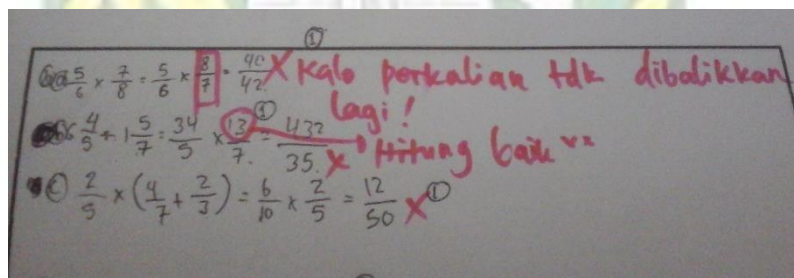 ①
a 5/6 × 7/8 = 5/6 × 8/7 = 40/42 X Kalo perkalian tdk dibalikkan lagi!
①
6 4/5 ÷ 1 5/7 = 34/5 × 13/7 = 432/35 X Hitung baik"
c 2/5 × (4/7 + 2/3) = 6/10 × 2/5 = 12/50 X ①